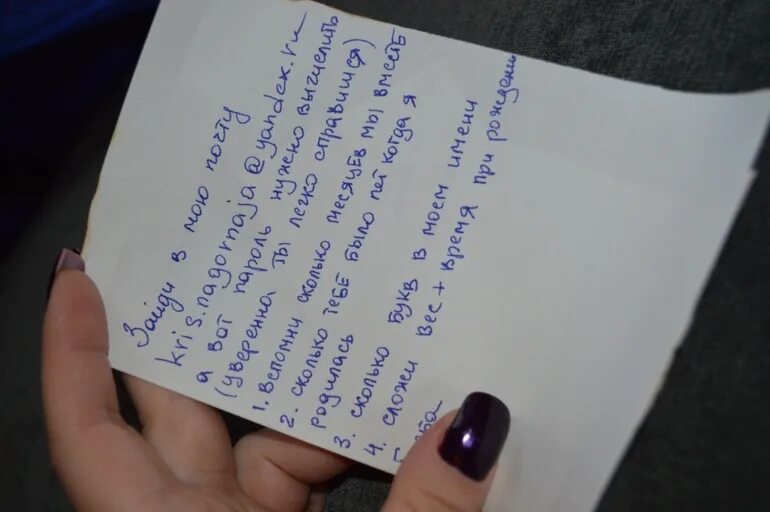 Зайди в мою почту
kris.nagornaja@yandex.ru
а вот пароль нужено вычислить
(уверенна ты легко справишся)
1. Вспомни сколько месяцев мы вместе
2. сколько тебе было лет когда я
родилась
3. сколько букв в моем имени
4. сложи вес + время при рождени